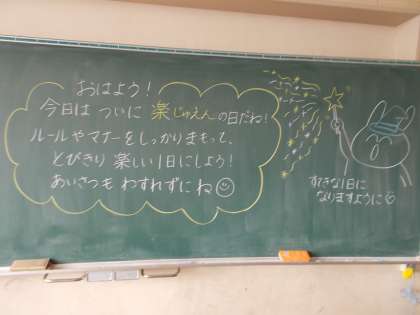 おはよう!
今日は ついに 楽じゅえんの日だね!
ルールやマナーをしっかりまもって、
とびきり 楽しい1日にしよう!
あいさつも わすれずにね
すてきな1日に
なりますように♡